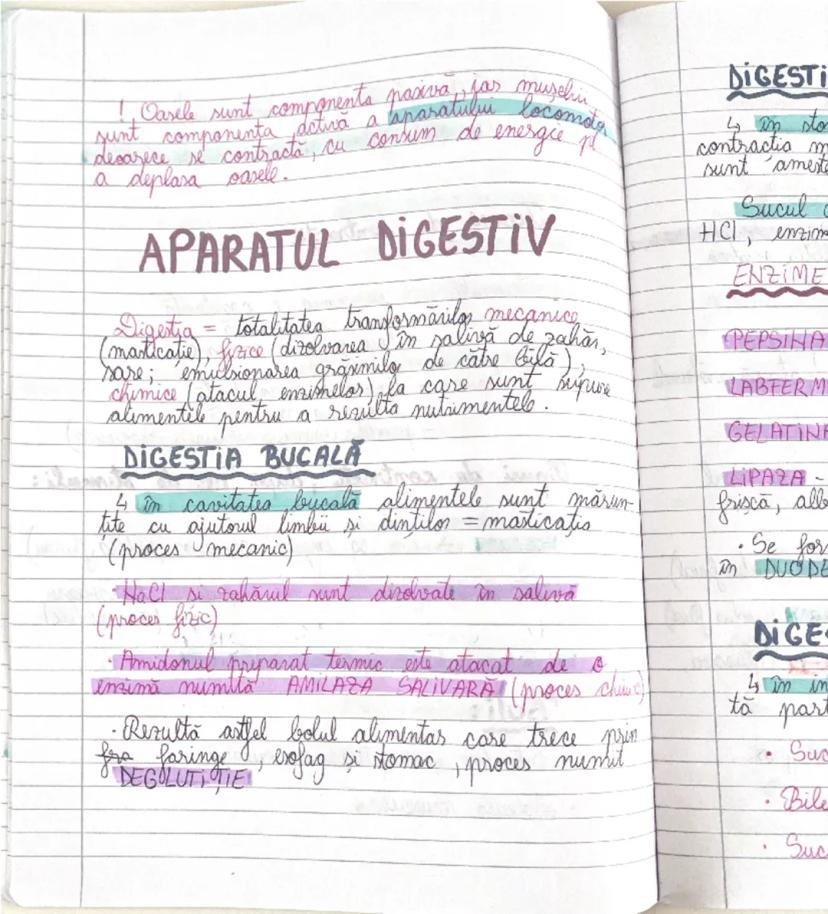 ! Oasele sunt componenta pasivă, iar mușchii
sunt componenta activă a aparatului locomotor
deoarece se contractă, cu consum de energie pt
a deplasa oasele.
APARATUL DiGESTiV
Digestia = totalitatea transformărilor mecanice
(masticație), fizice (dizolvarea în salivă de zahăr,
sare; emulsionarea grăsimilor de către bilă),
chimice (atacul enzimelor) la care sunt supuse
alimentele pentru a rezulta nutrimentele.
DiGESTiA BUCALĂ
↳ în cavitatea bucală alimentele sunt mărun-
țite cu ajutorul limbii și dinților = masticația
(proces mecanic)
· NaCl si zahărul sunt dizolvate în salivă
(proces fizic)
· Amidonul preparat termic este atacat de o
enzimă numită AMILAZA SALIVARĂ (proces chimic)
· Rezultă astfel bolul alimentar care trece prin
faringe, esofag și stomac, proces numit
DEGLUTIȚIE
DiGESTi
↳ în sto
contracția m
sunt ameste
Sucul
HCl, enzim
ENZIME
PEPSINA
LABFERM
GELATINA
LiPAZA -
frișcă, alb
· Se for
în DUODE
DiGES
↳ în in
tă part
· Suc
· Bile
· Suc